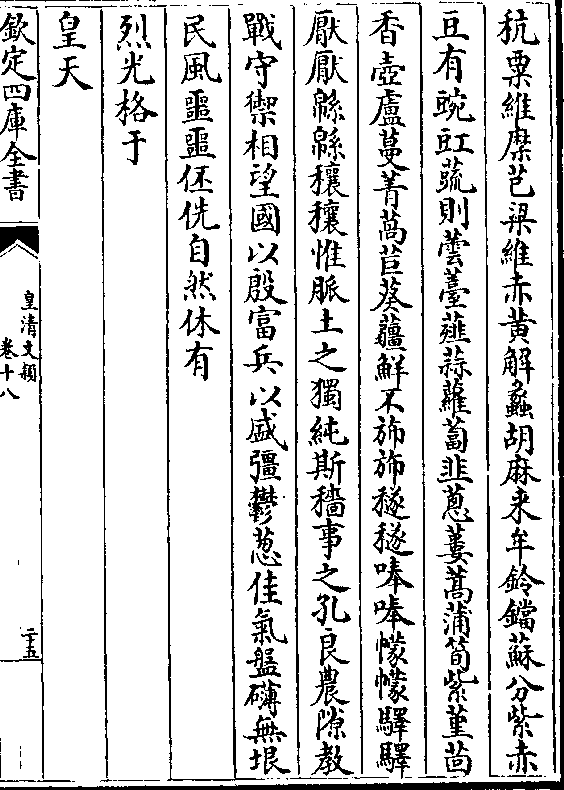 秔粟維穈芑粱維赤黃解蠡胡麻来牟鈴鐺蘇分紫赤
豆有豌豇蔬則蕓薹薤蒜蘿蔔韭蔥蔞蒿蒲筍紫堇茴
香壺盧蔓菁萵苣葵蘁鮮不斾斾穟穟唪唪幪幪驛驛
厭厭緜緜穰穰惟脈土之獨純斯穡事之孔良農隙教
戰守禦相望國以殷富兵以盛彊鬱蔥佳氣盤礴無垠
民風噩噩伾侁自然休有
烈光格于
皇天
欽定四庫全書
皇清文穎
卷十八
二十五